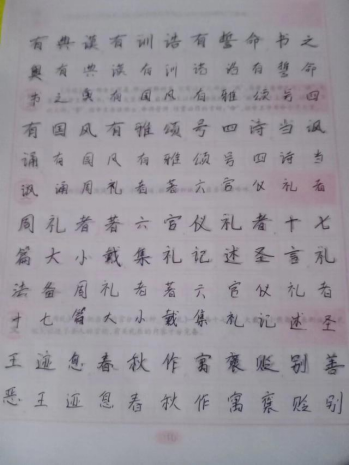 有典谟有训诰有誓命书之
奥有典谟有训诰有誓命
书之奥有国风有雅颂号四
有国风有雅颂号四诗当讽
诵有国风有雅颂号四诗当
讽诵周礼者著六官仪礼者
周礼者著六官仪礼者十七
篇大小戴集礼记述圣言礼
法备周礼者著六官仪礼者
十七篇大小戴集礼记述圣
王迹息春秋作寓褒贬别善
恶王迹息春秋作寓褒贬别